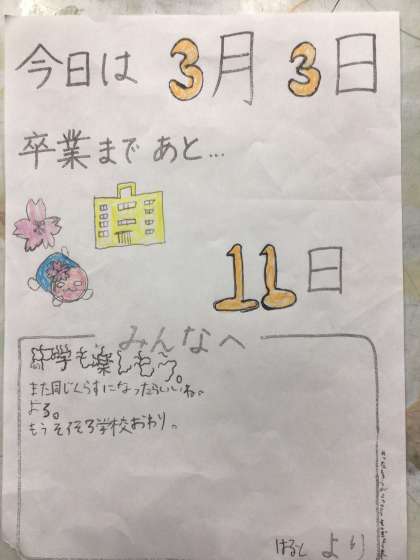 今日は 3月 3日
卒業まで あと…
11日
みんなへ
中学も楽しもう。
また同じくらすになったらいいね。
よろ。
もうそろそろ学校おわり。
はると より